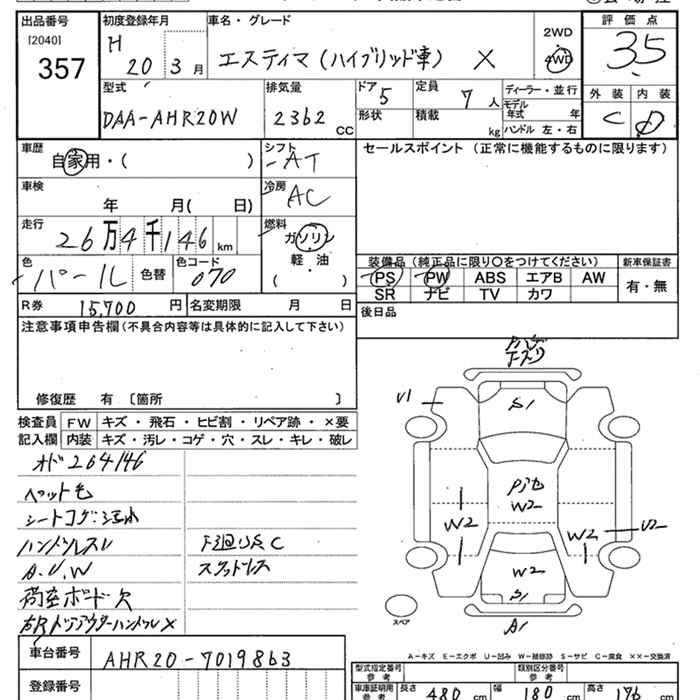 出品番号 初度登録年月 車名・グレード 2WD 評価点
[2040] H エスティマ(ハイブリッド車) X 4WD 3.5
357 20 3 月
型式 排気量 ドア 5 定員 7 人 ディーラー・並行 外装 内装
DAA-AHR20W 2362 CC 形状 積載 kg モデル年式 年 C D
ハンドル 左・右
車歴 自家用・( ) シフト AT セールスポイント (正常に機能するものに限ります)
車検 年 月( 日) 冷房 AC
走行 26万4千146 km 燃料 ガソリン
軽・油
( )
色 パール 色替 色コード 070 装備品 (純正品に限り○をつけてください) 新車保証書
PS PW ABS エアB AW 有・無
SR ナビ TV カワ
R券 15,700 円 名変期限 月 日 後日品
注意事項申告欄(不具合内容等は具体的に記入して下さい)
修復歴 有 〔箇所 〕
検査員 FW キズ・飛石・ヒビ割・リペア跡・×要
記入欄 内装 キズ・汚レ・コゲ・穴・スレ・キレ・破レ
オド264146
ペット毛
シートコゲ:汚れ
ハンドルスレ 下廻りS C
A.U.W スタッドレス
荷室ボード欠
右Rドアアウターハンドル×
U1
S1
W2
W2
W2 U2
W2
S1
A1
スペア
A-キズ E-エクボ U-凹み W-補修跡 S-サビ C-腐食 ××-交換済
車台番号 AHR20-7019863
型式指定番号 参考 類別区分番号 参考
登録番号 車庫証明用 参考 長さ 480 cm 幅 180 cm 高さ 176 cm